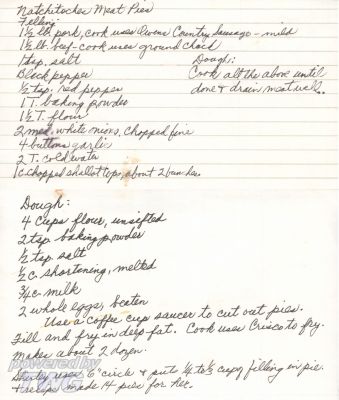 Natchitoches Meat Pies
Filling
1½ lb. pork, cook uses Owens Country Sausage - mild
1½ lb. beef - cook uses ground chuck
1 tsp. salt
Dough:
Black pepper
Cook all the above until
½ tsp. red pepper
done & drain meat well.
1 T. baking powder
1½ T. flour
2 med. white onions, chopped fine
4 buttons garlic
2 T. cold water
1 c. chopped shallot tops, about 2 bunches
Dough:
4 cups flour, unsifted
2 tsp. baking powder
½ tsp. salt
½ c. shortening, melted
¾ c. milk
2 whole eggs, beaten
Use a coffee cup saucer to cut out pies.
Fill and fry in deep fat. Cook uses Crisco to fry.
Makes about 2 dozen.
uses 6" circle & puts ¼ to ½ cup filling in pie.
made 14 pies for her.
powered by
TNG